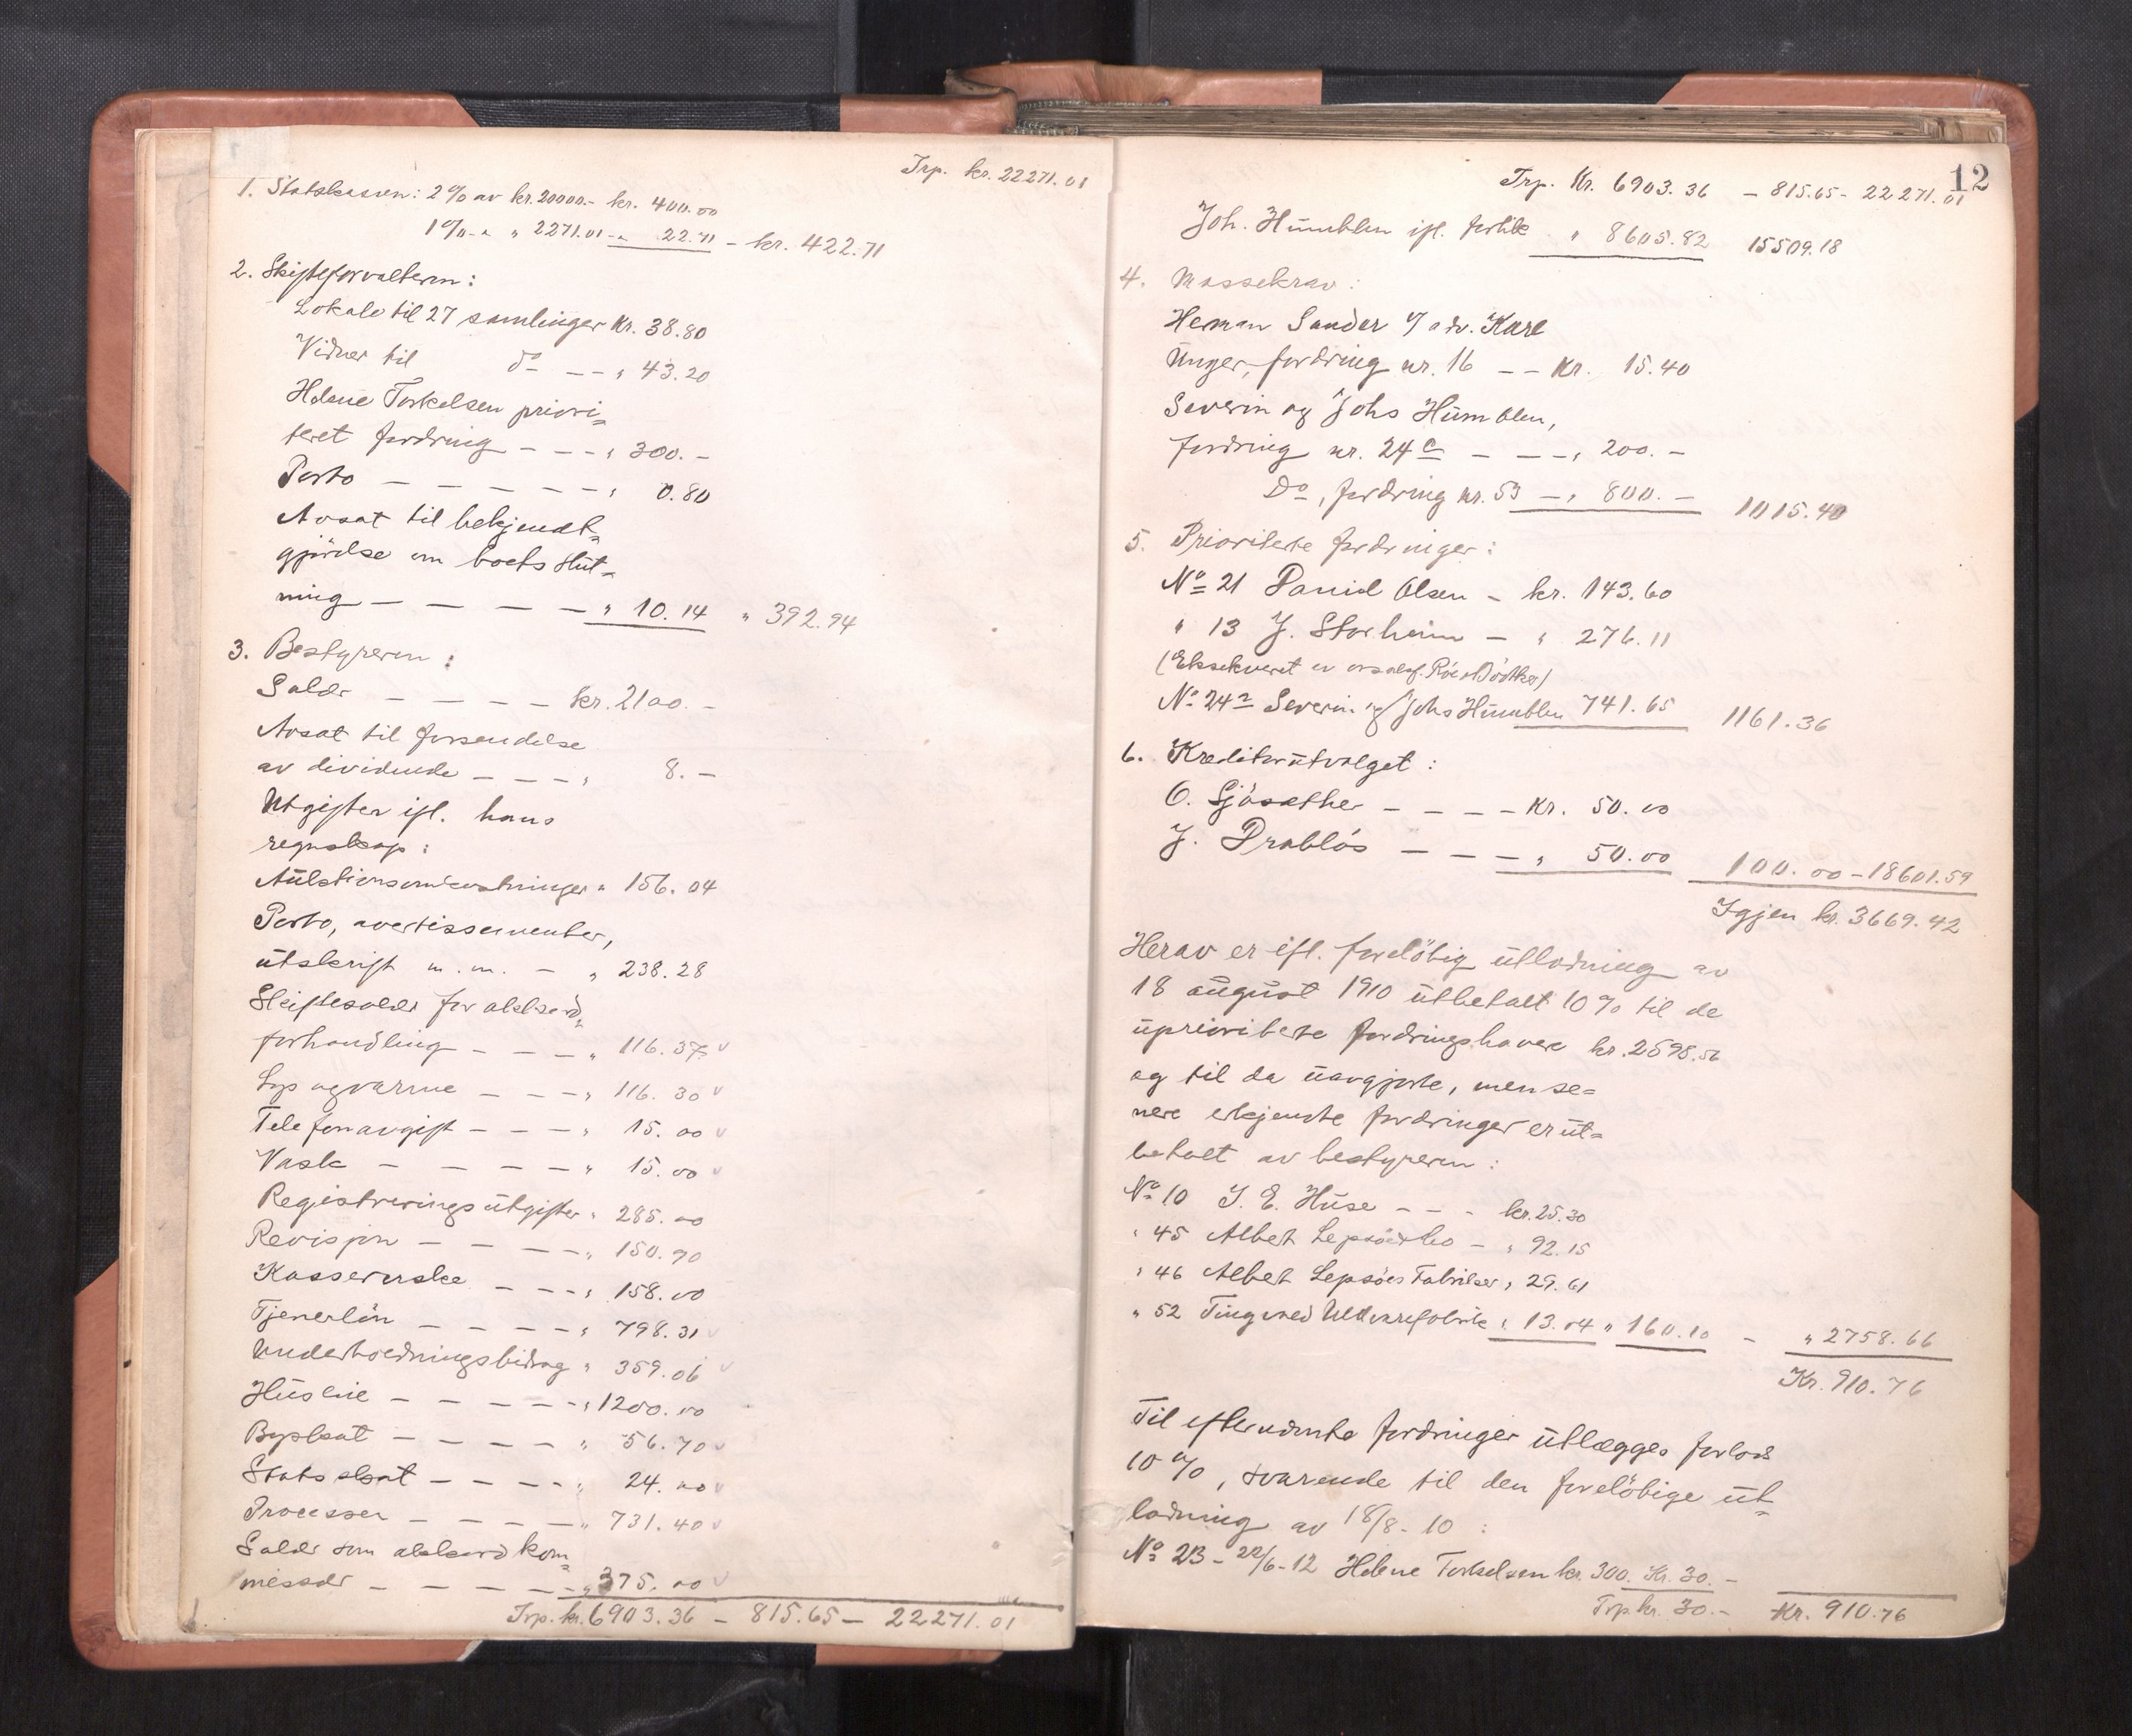 Trp. kr. 22271.01
1. Statskassen: 2% av kr. 20000.- kr. 400.00
1% - " " 2271.01 - " 22.71 - kr. 422.71
2. Skifteforvalteren:
Lokale til 27 samlinger kr. 38.80
Vidner til do - - " 43.20
Helene Torkelsen priori-
teret fordring - - - " 300.-
Porto - - - - - " 0.80
Avsat til bekjendt-
gjörelse om boets slut-
ning - - - - " 10.14 " 392.94
3. Bestyreren:
Salær - - - - kr. 2100.-
Avsat til forsendelse
av dividende - - - " 8.-
Utgifter ifl. hans
regnskap:
Auktionsomkostninger " 156.04
Porto, avertissementer,
utskrift m.m. - " 238.28
Skiftesalær for akkord-
forhandling - - - " 116.37
Lys og varme - - - " 116.30
Telefonavgift - - - " 15.00
Vask - - - - " 15.00
Registreringsutgifter " 285.00
Revisjon - - - - " 150.90
Kassererske - - - " 158.00
Tjenerlön - - - - " 798.31
Underholdningsbidrag " 359.06
Husleie - - - - " 1200.00
Byskat - - - - " 56.70
Statsskat - - - - " 24.00
Processer - - - - " 731.40
Salær som akkordkom-
missær - - - - " 375.00
Trp. kr. 6903.36 - 815.65 - 22271.01
12
Trp. Kr. 6903.36 - 815.65 - 22271.01
Joh. Humblen ifl. forlik " 8605.82 15509.18
4. Massekrav:
Herman Sander v/ adv. Karl
Unger, fordring nr. 16 - - Kr. 15.40
Severin og Johs Humblen,
fordring nr. 24c - - - " 200.-
Do, fordring nr. 53 - " 800.- 1015.40
5. Prioriterte fordringer:
No 21 Daniel Olsen - kr. 143.60
" 13 J. Storheim - " 276.11
(Eksekveret av
No 24a Severin og Johs Humblen 741.65 1161.36
6. Kreditorutvalget:
O. Sjösæther - - - - Kr. 50.00
J. Drabløs - - - " 50.00 100.00 - 18601.59
Igjen kr. 3669.42
Herav er ifl. foreløbig utlodning av
18 august 1910 utbetalt 10% til de
uprioriterte fordringshavere kr. 2598.56
og til da uavgjorte, men se-
nere erkjendte fordringer er ut-
betalt av bestyreren:
No 10 J. E. Huse - - - kr. 25.30
" 45 Albert Lepsöe & Co - " 92.15
" 46 Albert Lepsöes Fabriker " 29.61
" 52 Tingvold Uldvarefabrik " 13.04 " 160.10 - " 2758.66
Kr. 910.76
Til efternævnte fordringer utlægges forlods
10%, svarende til den foreløbige ut-
lodning av 18/8-10:
No 23 - 22/6-12 Helene Torkelsen kr. 300. Kr. 30.-
Trp. kr. 30.- Kr. 910.76